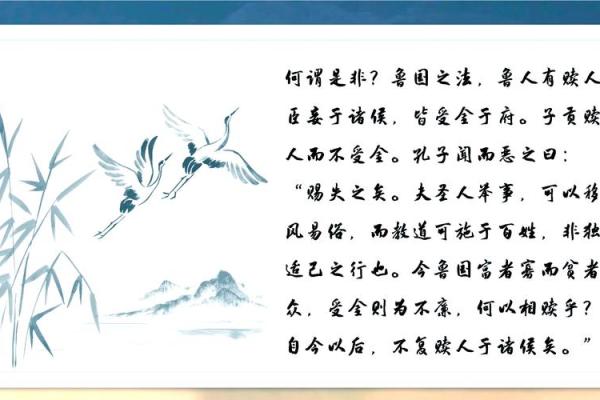 何谓是非？鲁国之法，鲁人有赎人
臣妾于诸侯，皆受金于府。子贡赎
人而不受金。孔子闻而恶之曰：
“赐失之矣。夫圣人举事，可以移
风易俗，而教道可施于百姓，非独
适己之行也。今鲁国富者寡而贫者
众，受金则为不廉，何以相赎乎？
自今以后，不复赎人于诸侯矣。”